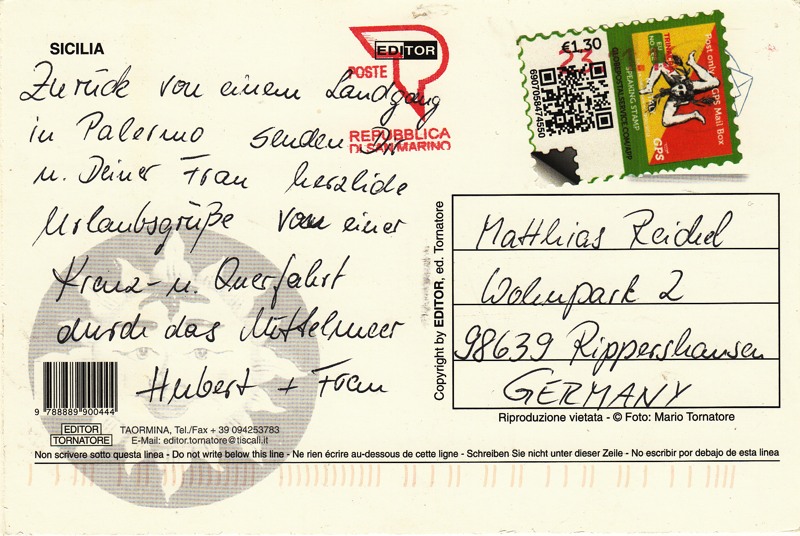 SICILIA
Zurück von einem Landgang
in Palermo senden Dir
u. Deiner Frau herzliche
Urlaubsgrüße von einer
Kreuz- u. Querfahrt
durch das Mittelmeer
Hubert + Frau
EDITOR
POSTE
REPUBBLICA
DI SAN MARINO
€1,30
6907058474550
SPEAKING STAMP
Post only GPS Mail Box
GPS
Matthias Reichel
Wohnpark 2
98639 Rippershausen
GERMANY
Copyright by EDITOR, ed. Tornatore
Riproduzione vietata - © Foto: Mario Tornatore
9 788889 900444
EDITOR
TORNATORE
TAORMINA, Tel./Fax + 39 094253783
E-Mail: editor.tornatore@tiscali.it
Non scrivere sotto questa linea - Do not write below this line - Ne rien écrire au-dessous de cette ligne - Schreiben Sie nicht unter dieser Zeile - No escribir por debajo de esta linea